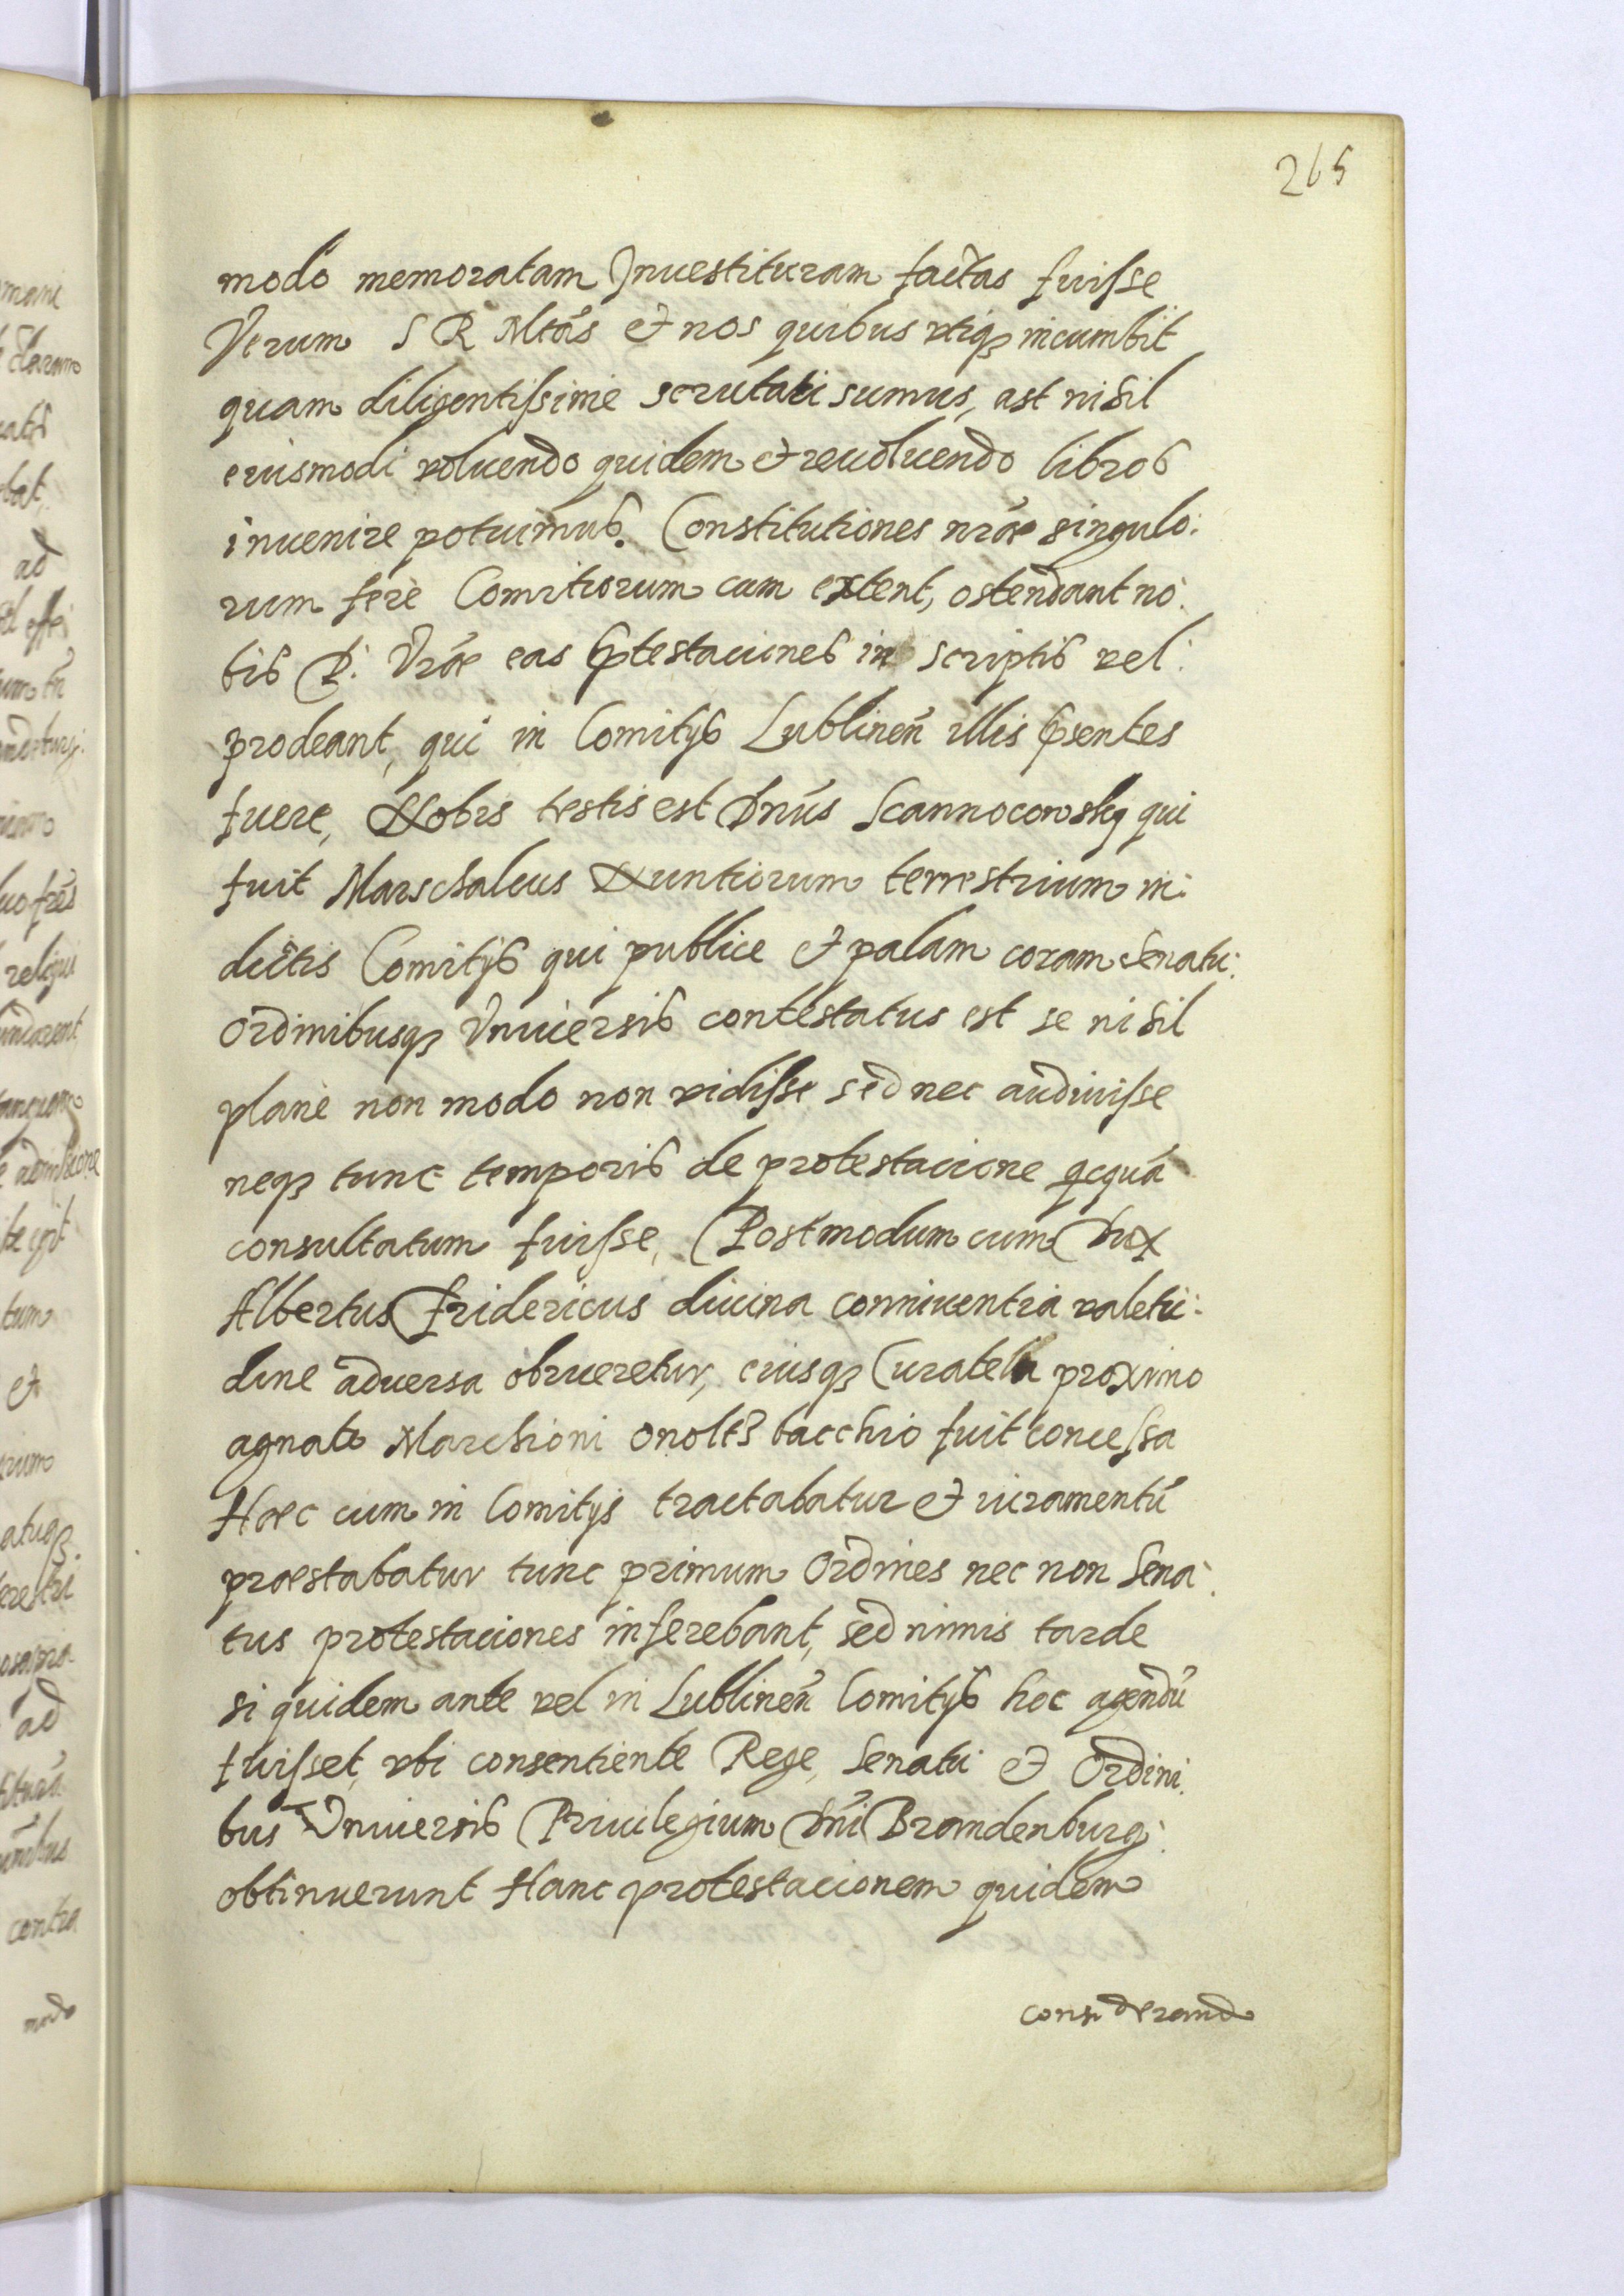 265
modo memoratam Inuestituram factas fuisse
Verum S R Mtas et nos quibus vtiqȝ incumbit
quam diligentissime scrutati sumus, ast nihil
eiusmodi voluendo quidem et reuoluendo libros
inuenire potuimus. Constitutiones nrae singulo:
rum fere Comitiorum cum extent, ostendant no:
bis D: Vrae eas ꝓtestaciones in scriptis vel:
prodeant, qui in Comitijs Lublinen illis pñsentes
fuere, Nobis testis est Dnus Scannocorosky qui
fuit Marschalcus Nuntiorum terrestrium in:
dictis Comitijs qui publice et palam coram Senatu:
Ordinibusqȝ Vniuersis contestatus est se nihil
plane non modo non vidisse sed nec audiuisse
neqȝ tunc temporis de protestacione qcquã
consultatum fuisse, Postmodum cum Dux
Albertus Fridericus diuina conniuentia valetu:
dine aduersa obrueretur, eiusqȝ Curatela proximo
agnato Marchioni Onoltsbacchio fuit concessa
Haec cum in Comitijs tractabatur et iuramentũ
praestabatur tunc primum Ordines nec non Sena:
tus protestaciones inferebant, sed nimis tarde
si quidem ante vel in Lublinen Comitijs hoc agendũ
fuisset, vbi consentiente Rege, Senatu et Ordini:
bus Vniuersis Priuilegium Dni Brandenburg:
obtinuerunt Hanc protestacionem quidem
considerando